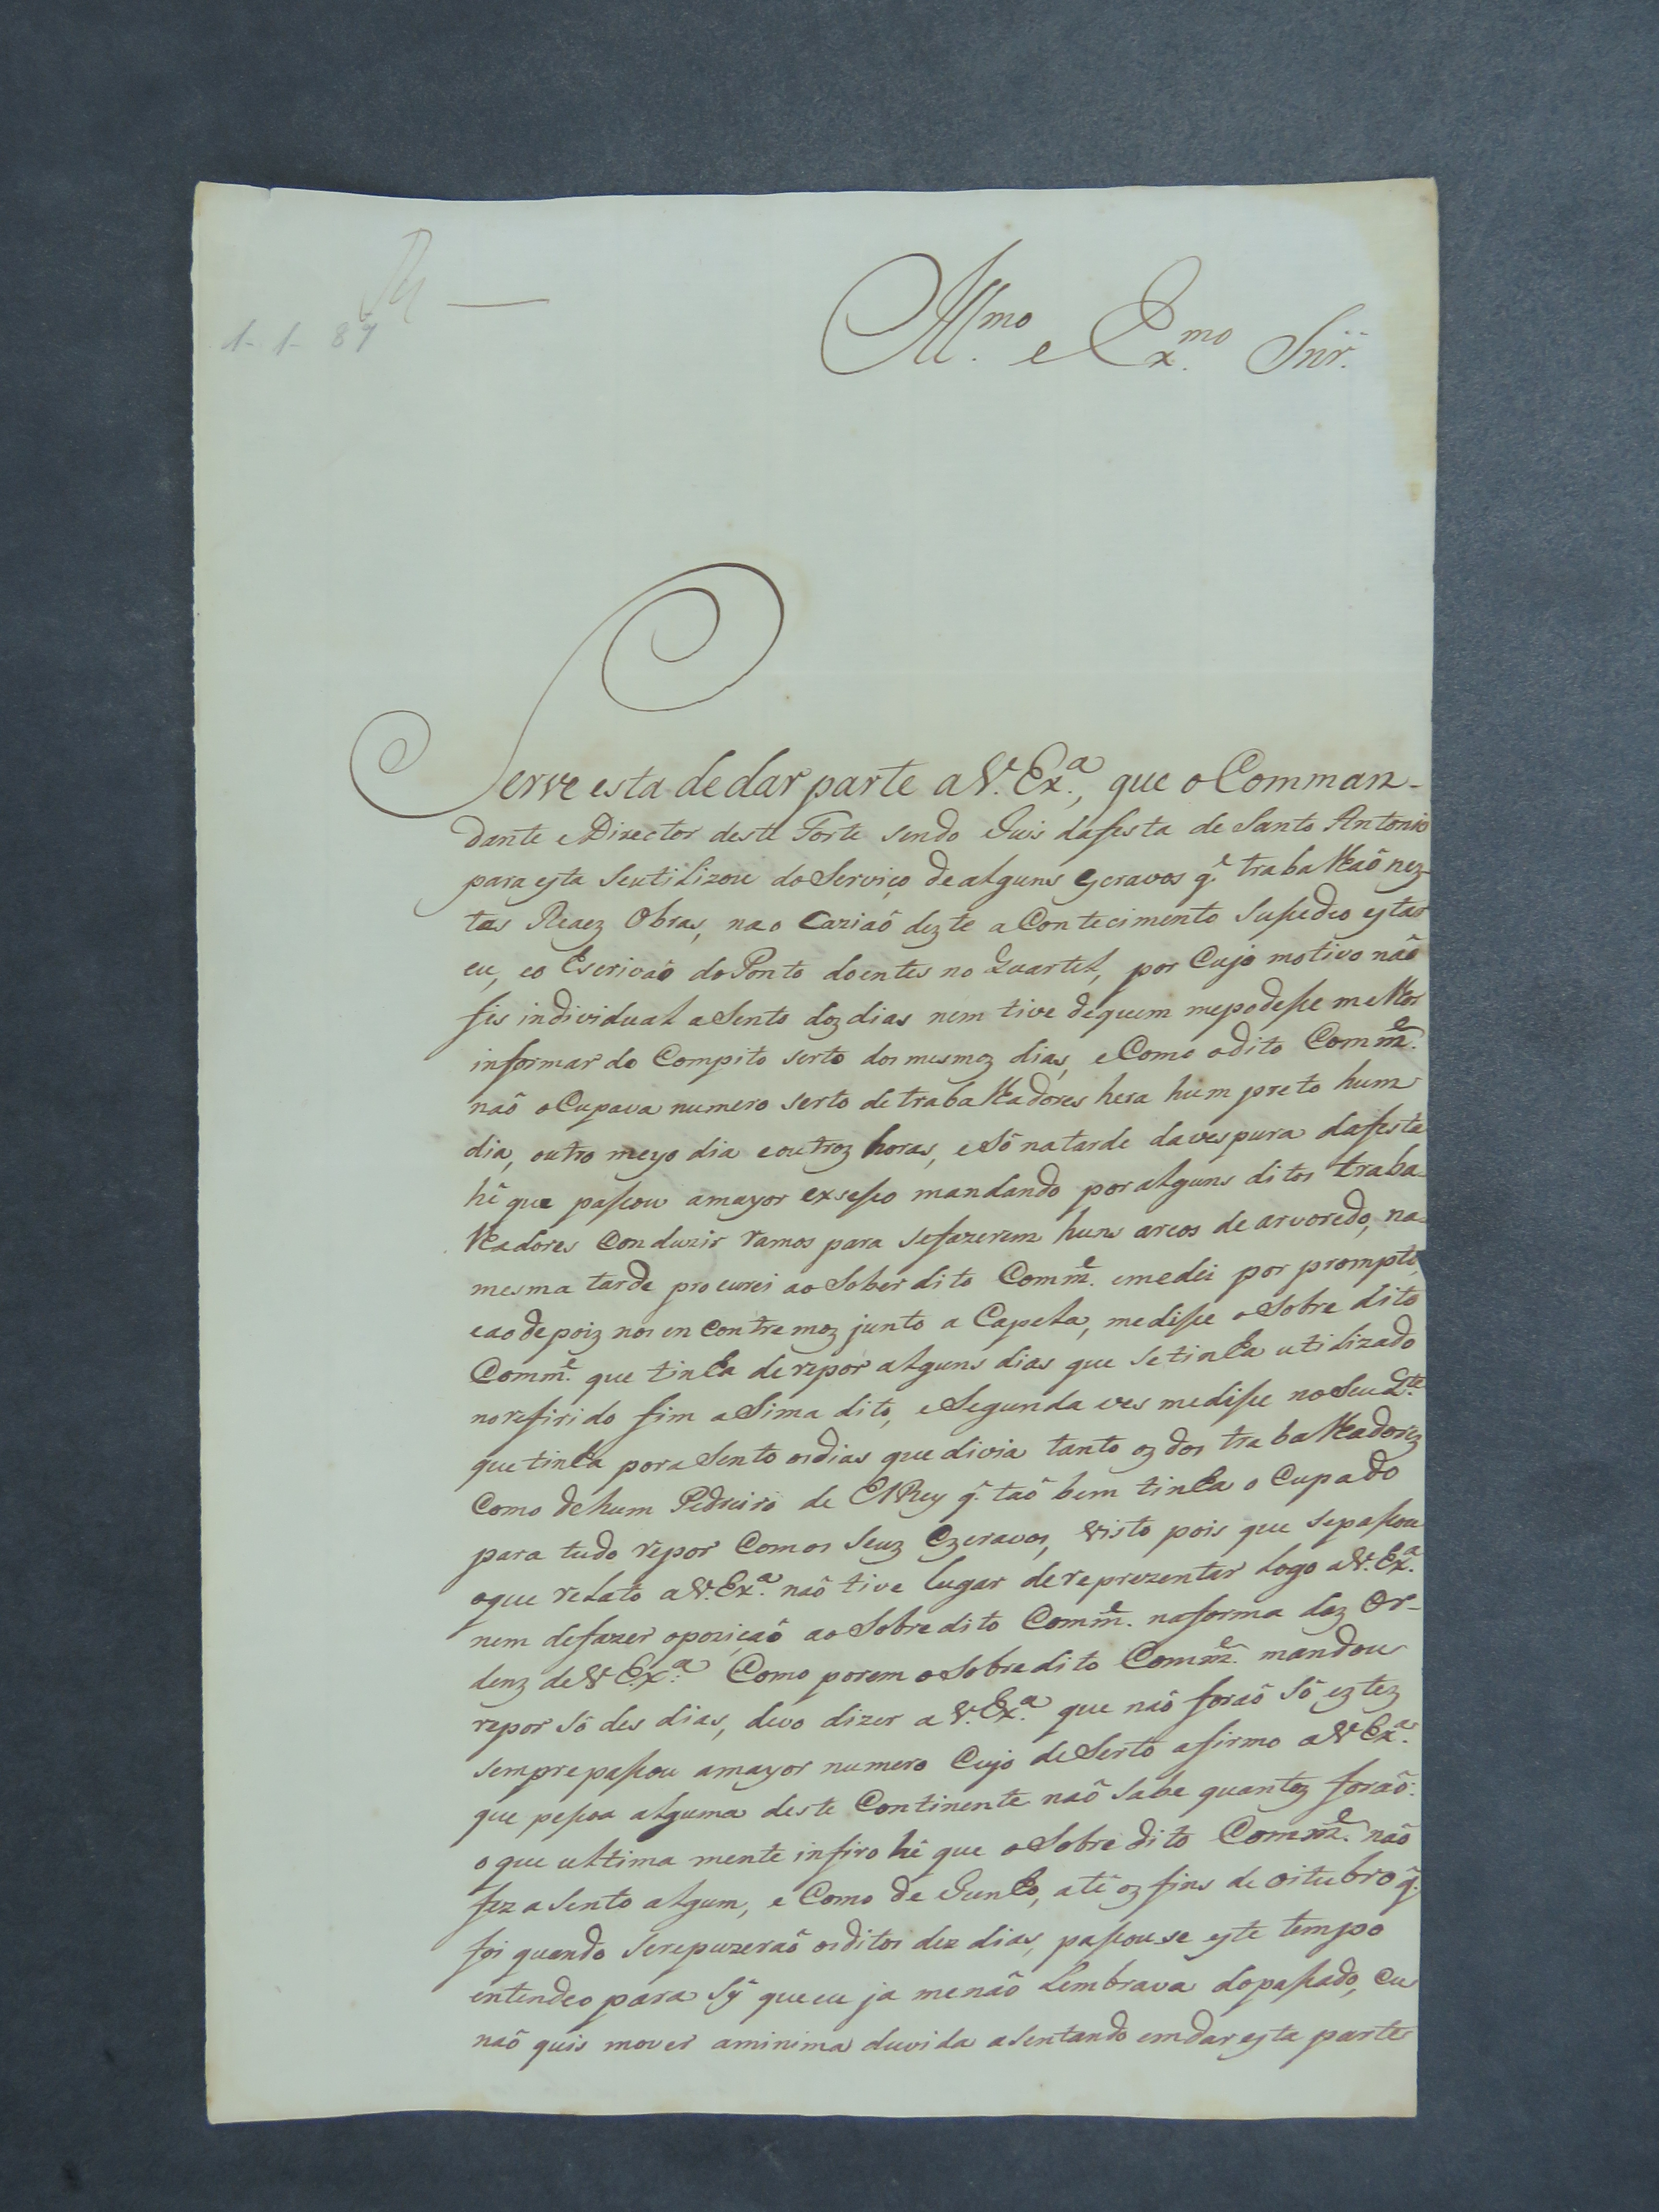 1-1-87
Ill.mo e Ex.mo Snr.
Serve esta de dar parte a V. Ex.a, que o Comman-
dante e Director deste Forte sendo Juis dafesta de Santo Antonio
para esta seutilizou do Serviço de alguns escravos q.e trabalhaõ nez-
tas Reaez Obras, na o Caziaõ dezte a Contecimento Susedeo estar
eu, e o Escrivaõ do Ponto doentes no Quartel, por Cujo motivo naõ
fis individual aSento doz dias nem tive dequem mepodesse melhor
informar do Compito serto dos mesmoz dias, e Como odito Comm.e
naõ oCupava numero serto de trabalhadores hera hum preto hum
dia, outro meyo dia e outroz horas, e Só natarde davespura dafesta
hé que passou amayor exsesso mandando por alguns ditos traba-
lhadores Conduzir ramos para sefazerem huns arcos de arvoredo, na
mesma tarde procurei ao Soberdito Comm.e emedei por prompto,
eao depoiz nos en Contremoz junto a Capela, medisse o Sobre dito
Comm.e que tinha derepor alguns dias que setinha utilizado
norefirido fim aSima dito, eSegunda ves medisse noSeu Q.te
quetinha poraSento osdias que divia tanto oz dos trabalhadorez
Como dehum Pedreiro de ElRey q. taõ bem tinha oCupado
para tudo repor Comos Seuz Ezcravos, visto pois que sepassou
oque relato a V. Ex.a naõ tive lugar dereprezentar logo aV. Ex.a
nem defazer opoziçaõ ao Sobredito Comm.e naforma daz Or-
denz de V Ex.a Como porem o Sobredito Comm.e mandou
repor só des dias, devo dizer a V. Ex.a que naõ foraõ só eztez
semprepassou amayor numero Cujo deSerto afirmo aV Ex.a
que pessoa alguma deste Continente naõ sabe quantoz foraõ:
o que ultima mente infiro hé que o Sobre dito Comm.e naõ
fez aSento algum, e Como de Junho, até oz fins de oitubro q.
foi quando Serepuzeraõ osditos dez dias, passouse este tempo
entendeo para Sy que eu ja menaõ Lembrava dopassado, Eu
naõ quis mover aminima duvida aSentando emdar esta parte